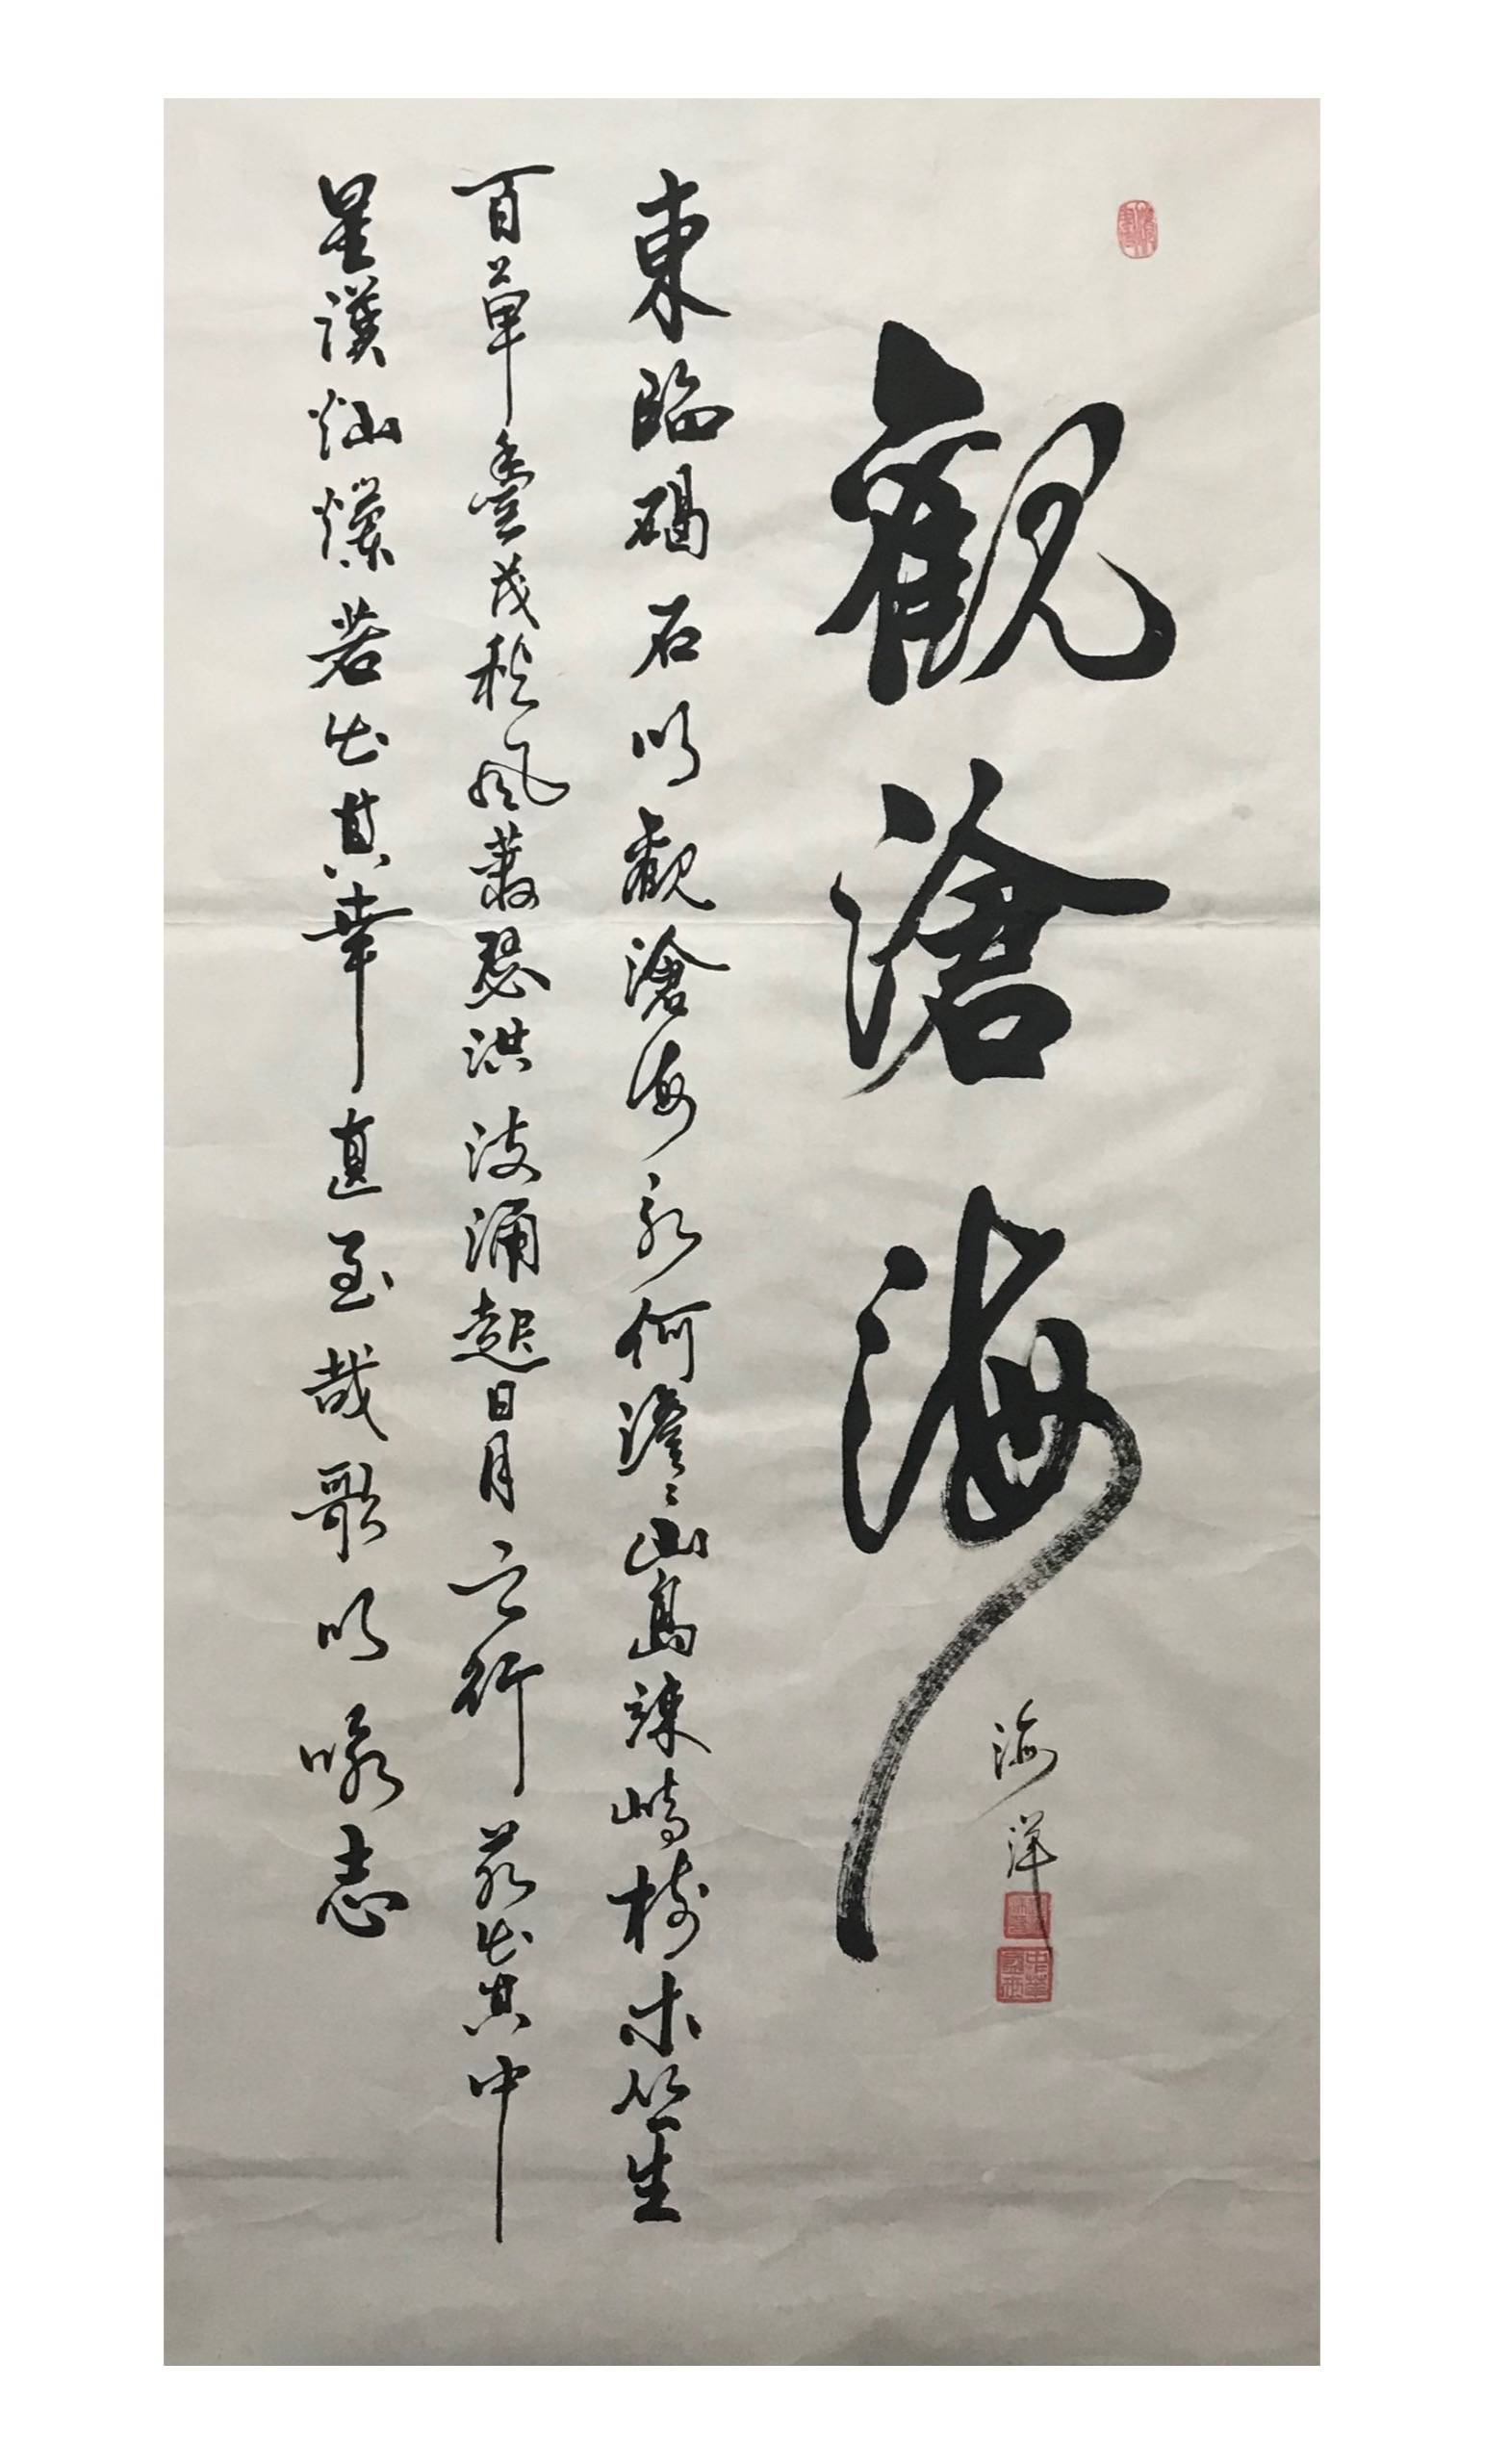 觀滄海
海洋
東臨碣石以觀滄海水何澹〻山島竦峙樹木叢生
百草豐茂秋風蕭瑟洪波涌起日月之行若出其中
星漢燦爛若出其裏幸甚至哉歌以詠志